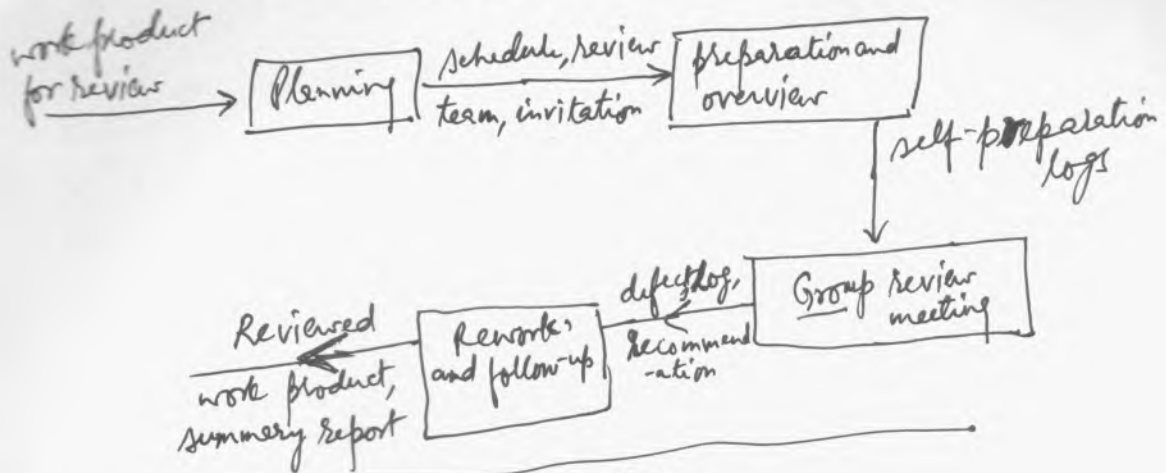 work product
for review
Planning
schedule, review
team, invitation
preparation and
overview
self-preparation
logs
Group review
meeting
defects log,
recommend
-ation
Rework
and follow-up
Reviewed
work product,
summery report